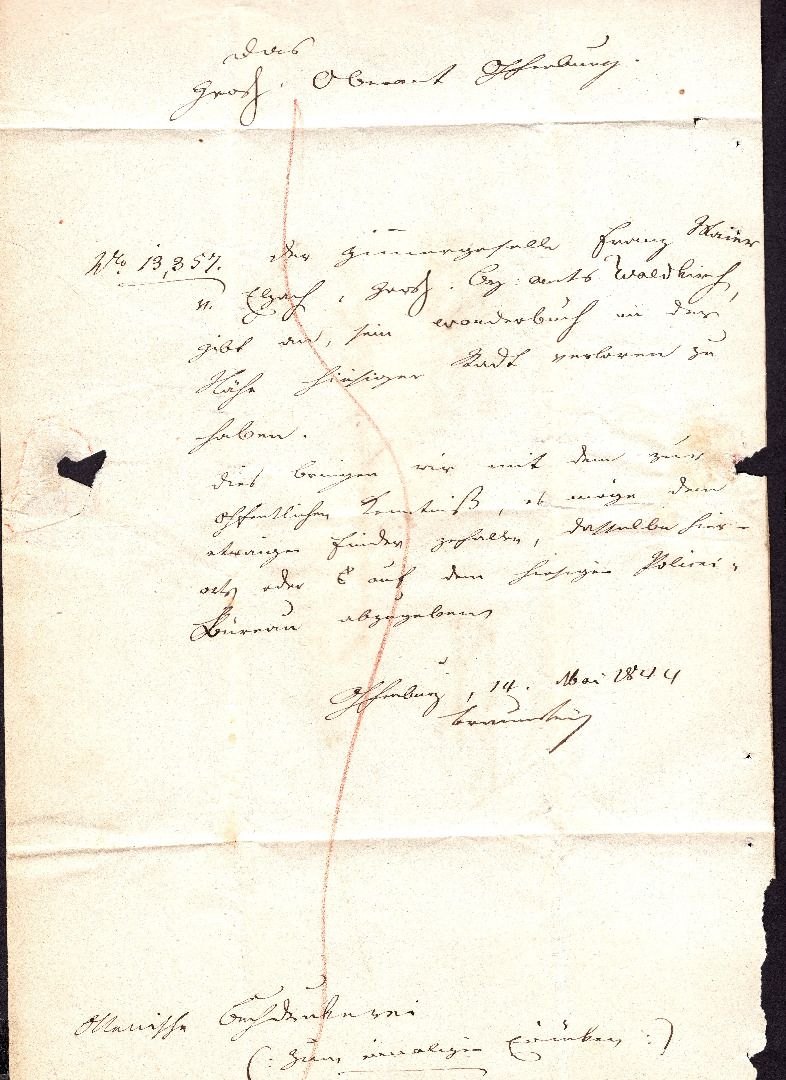 Das
Großh. Oberamt Offenburg.
Nro 13,857. Der Zimmergeselle Franz Maier
v. Elzach, Großh. Bez: Amts Waldkirch,
gibt an, sein Wanderbuch in der
Nähe hiesiger Stadt verloren zu
haben.
Dies bringen wir mit dem zur
öffentlichen Kenntniß, es möge dem
etwaigen Finder gefallen, dasselbe hier-
orts oder auf dem hiesigen Polizei-
Büreau abzugeben
Offenburg, 14. Mai 1844
Braunstein
Ottenische Buchdruckerei
(: zum einmaligen Einrücken :)